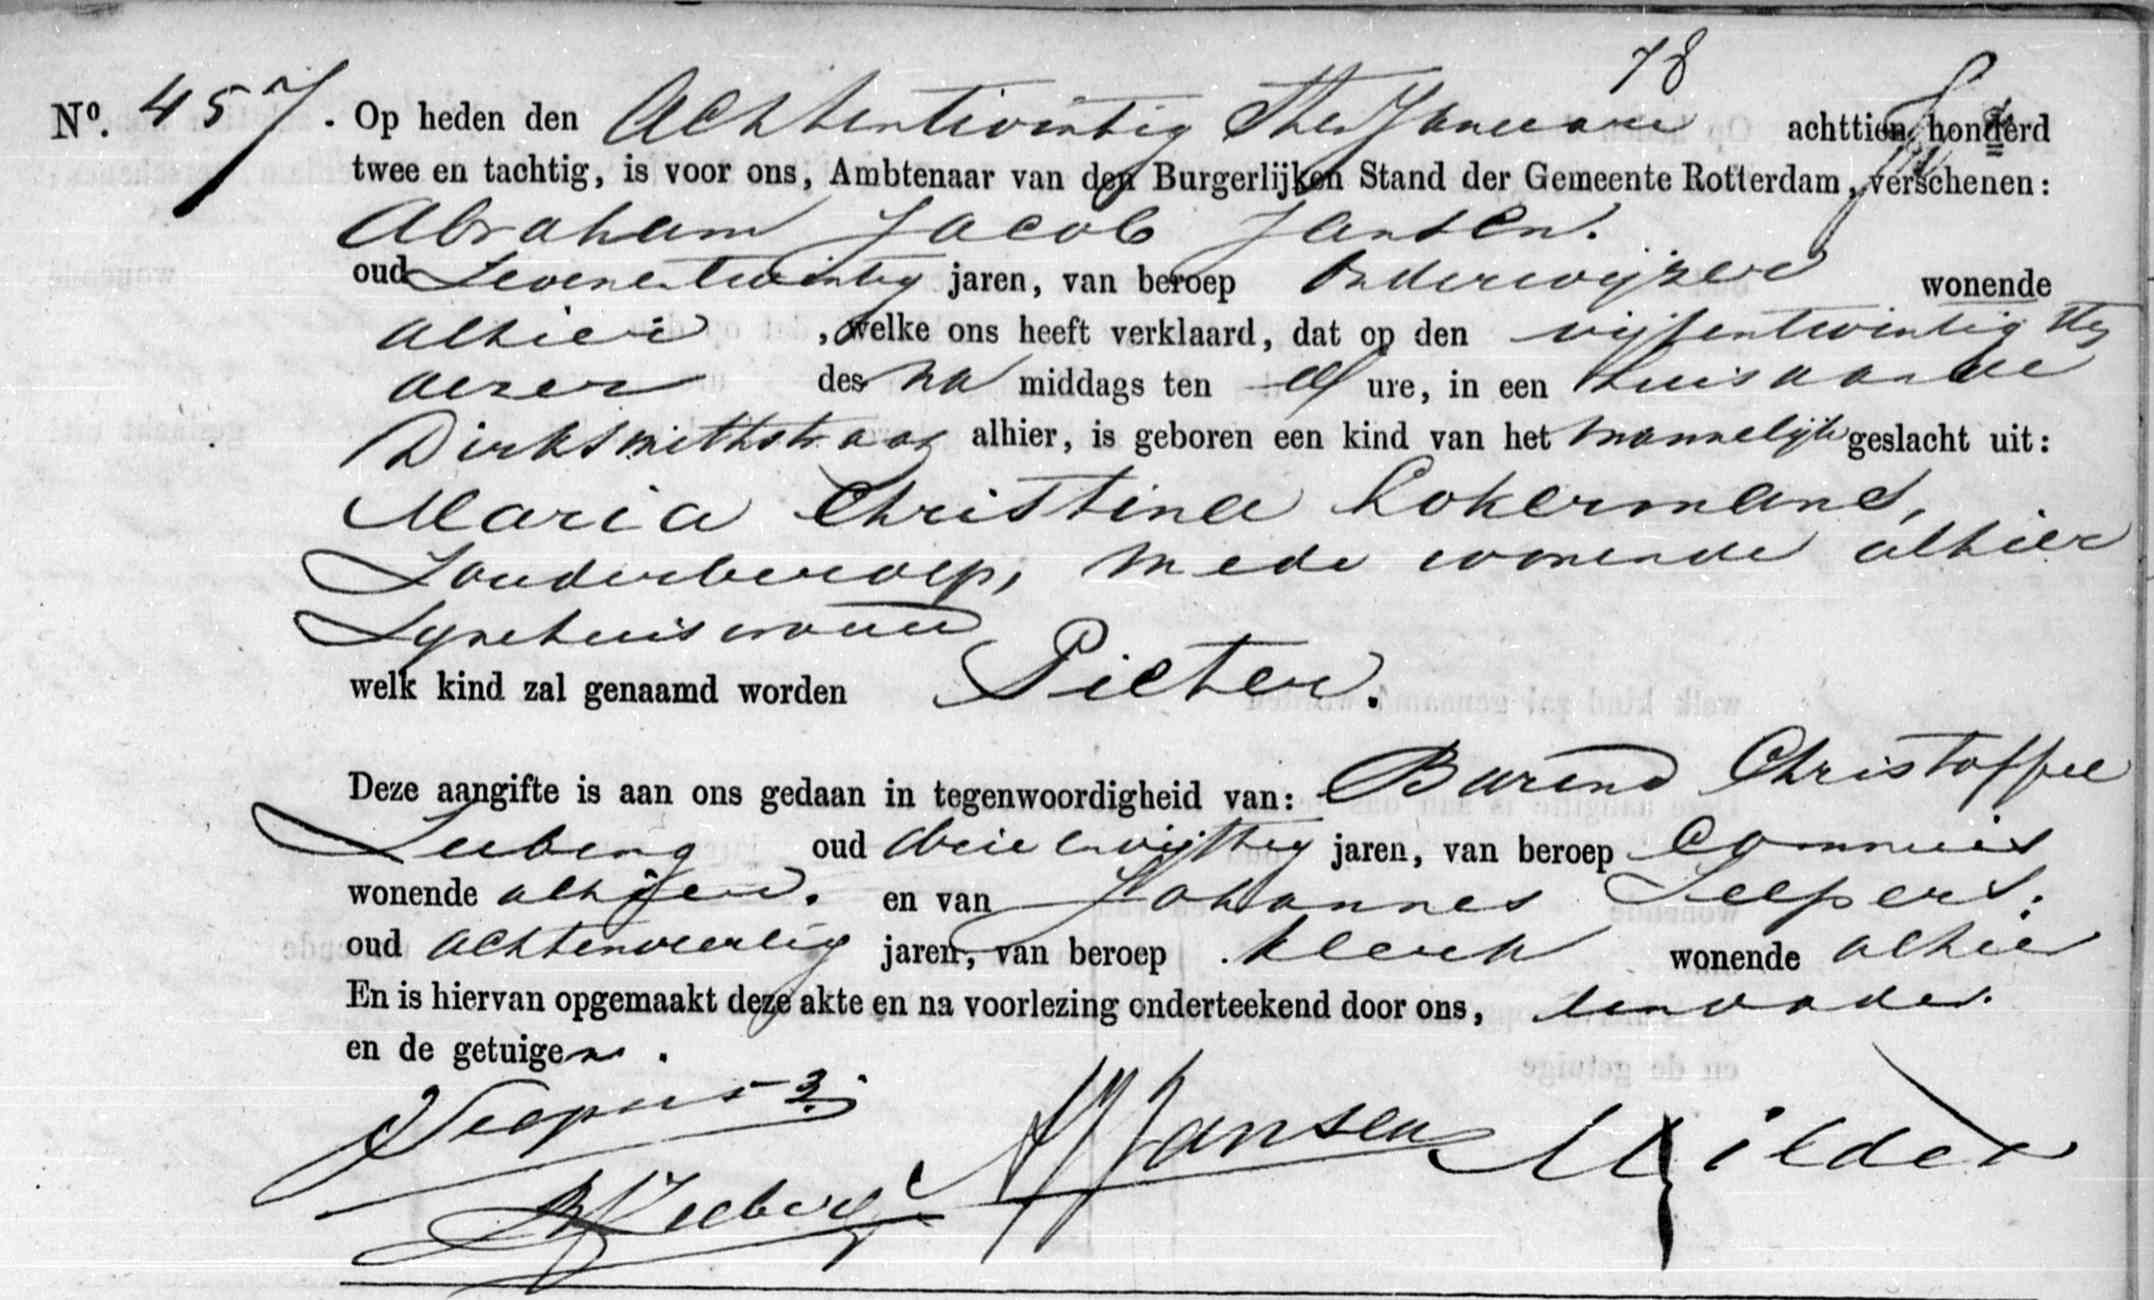 78
No. 457. Op heden den Achtentwintigsten Januari achttien honderd
twee en tachtig, is voor ons, Ambtenaar van den Burgerlijken Stand der Gemeente Rotterdam, verschenen:
Abraham Jacob Jansen.
oud Zevenentwintig jaren, van beroep Onderwijzer wonende
alhier, welke ons heeft verklaard, dat op den vijfentwintigsten
dezer des na middags ten elf ure, in een huis aan de
Dirksmithstraat alhier, is geboren een kind van het mannelijk geslacht uit:
Maria Christina Kokermans,
Zonder beroep, mede wonende alhier
Zijne huisvrouw
welk kind zal genaamd worden Pieter.
Deze aangifte is aan ons gedaan in tegenwoordigheid van: Barend Christoffel
Zeeberg oud drie en vijftig jaren, van beroep Commies
wonende alhier. en van Johannes Seepers.
oud achtenveertig jaren, van beroep klerk wonende alhier
En is hiervan opgemaakt deze akte en na voorlezing onderteekend door ons, den vader.
en de getuigen.
JSeepers AJJansen Milders
BCZeeberg